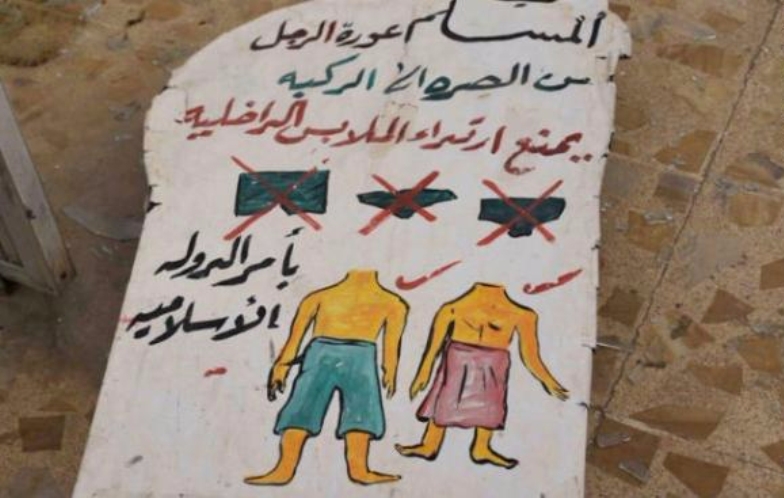 المسلم عورة الرجل
من الصره الى الركبه
يمنع ارتداء الملابس الداخليه
بأمر الدوله
الأسلاميه